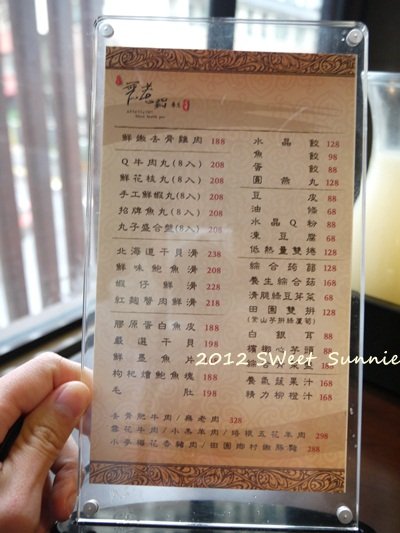 無老鍋
鮮嫩去骨雞肉 188
Q牛肉丸(8入) 208
鮮花枝丸(8入) 208
手工鮮蝦丸(8入) 208
招牌魚丸(8入) 208
丸子盛合盤(8入) 208
北海道干貝滑 238
鮮味鮑魚滑 208
蝦仔鮮滑 218
紅麴腎肉鮮滑 218
膠原蛋白魚皮 188
嚴選干貝 198
鮮墨魚片 188
枸杞燴鮑魚塊 188
毛肚 188
水晶餃 128
魚餃 98
蛋餃 88
團燕丸 128
豆皮 88
油條 68
水晶Q粉 88
凍豆腐 68
低熱量雙捲 128
綜合菇類 128
養生綜合菇 168
清脆綠豆芽菜 68
田園雙拼 128
(紫山芋拼綠蘆筍)
白銀耳 88
檳榔心芋頭 88
養氣蔬果汁 168
精力柳橙汁 168
去骨肥牛肉/無老肉 328
雪花牛肉/小羔羊肉/培根五花羊肉 298
小麥梅花香豬肉/田園鄉村嫩豚豬 288
2012 SWeet Sunnie